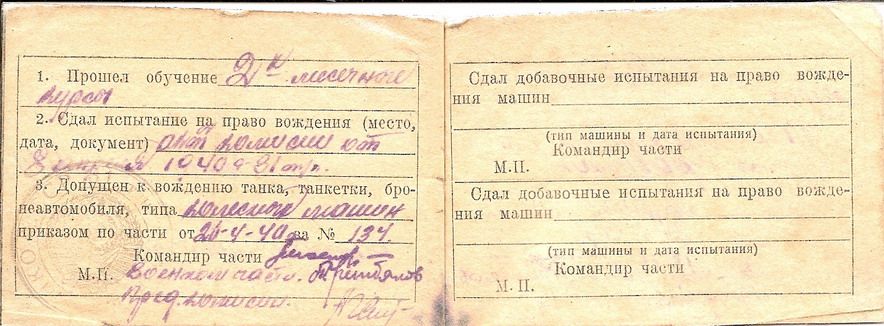 1. Прошел обучение 2х месечного
курсы
2. Сдал испытание на право вождения (место,
дата, документ) акт комисии от
8 апреля 1940
3. Допущен к вождению танка, танкетки, бро-
неавтомобиля, типа колесного машин
приказом по части от 26-4-40 за № 134.
Командир части
М.П. Военком части.
Пред. комисии.
Сдал добавочные испытания на право вожде-
ния машин
(тип машины и дата испытания)
Командир части
М.П.
Сдал добавочные испытания на право вожде-
ния машин
(тип машины и дата испытания)
Командир части
М. П.